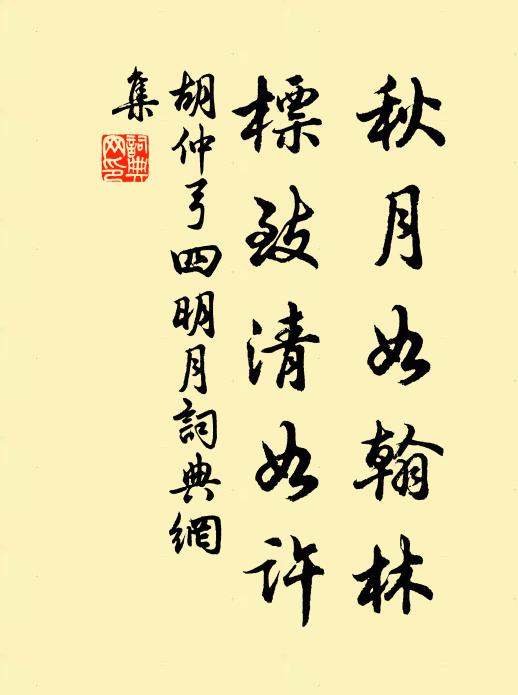 秋月如翰林
標致清如許
胡仲弓四明月詞典網
集
詞典
网印